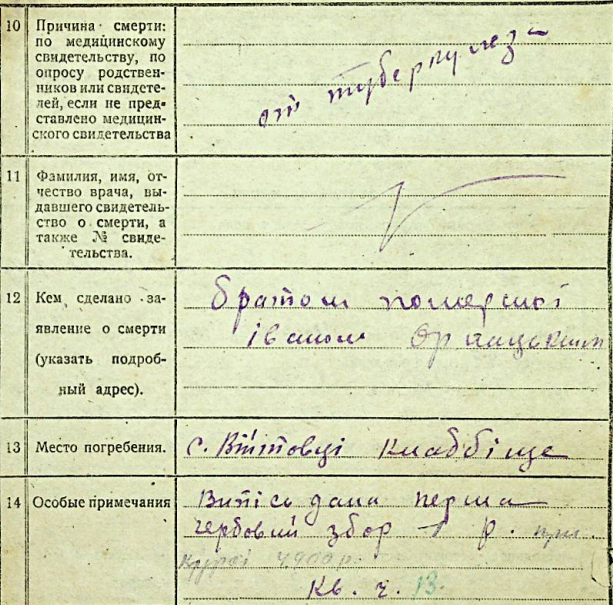 10 Причина смерти:
по медицинскому
свидетельству, по
опросу родствен-
ников или свидете-
лей, если не пред-
ставлено медицин-
ского свидетельства
от туберкулеза
11 Фамилия, имя, от-
чество врача, вы-
давшего свидетель-
ство о смерти, а
также № свиде-
тельства.
12 Кем сделано за-
явление о смерти
(указать подроб-
ный адрес).
братом помершої
Іваном
13 Место погребения.
с. Вітовці кладбіще
14 Особые примечания
Випісь дана перша
гербовий збор 1 р.
кв. ч. 13.